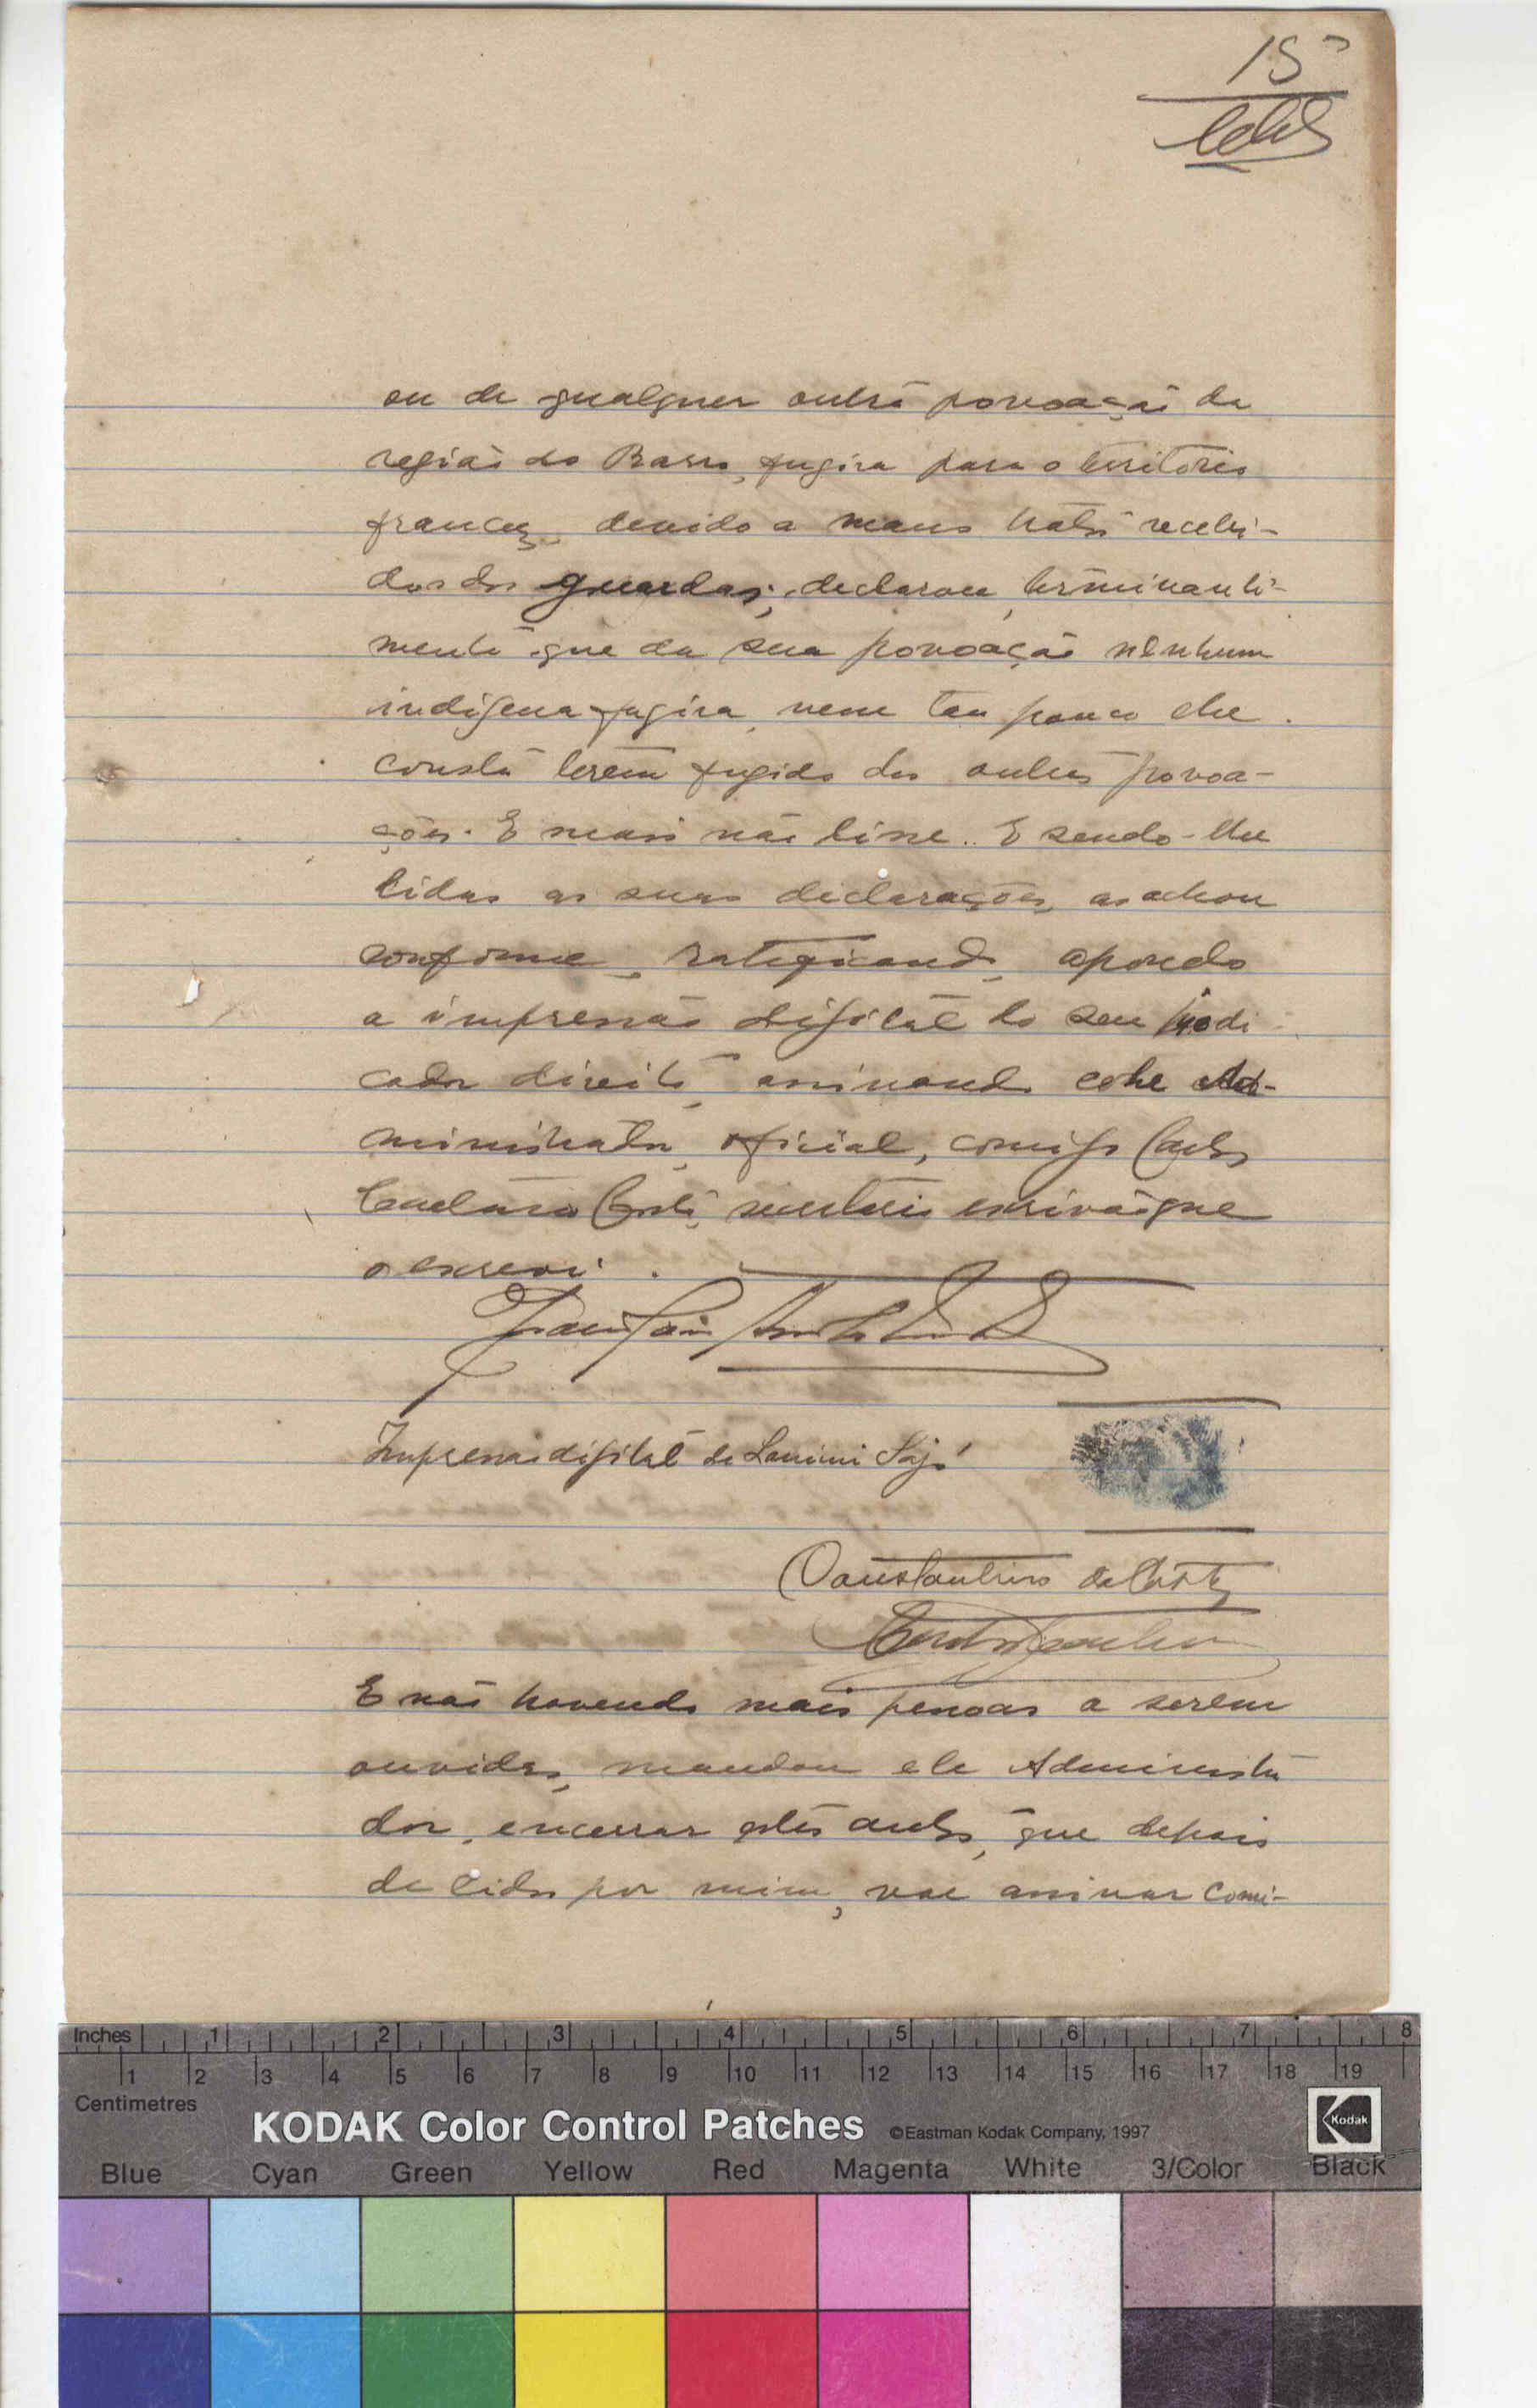 15
ou de qualquer outra povoação da
região do Barro, fugira para o territorio
francez, devido a maus tratos recebi-
dos dos guardas; declarou terminante-
mente que da sua povoação nenhum
indigena fugira, nem tam pouco lhe
consta terem fugido das outras povoa-
ções. E mais não disse. E sendo-lhe
lidas as suas declarações, as achou
conforme, ratificando, apondo
a impressão digital do seu indi
cador direito, assinando este Ad-
ministrador, oficial, comigo Carlos
Costa, escrivão que
o escrevi.
Impressão digital de Lamini Sajó
Constantino da Costa
E não havendo mais pessoas a serem
ouvidas, mandou ele Administra
dor, encerrar estes autos, que depois
de lidos por mim, vae assinar comi-
Inches 1 2 3 4 5 6 7 8
1 2 3 4 5 6 7 8 9 10 11 12 13 14 15 16 17 18 19
Centimetres
KODAK Color Control Patches ©Eastman Kodak Company, 1997 Kodak
Blue Cyan Green Yellow Red Magenta White 3/Color Black